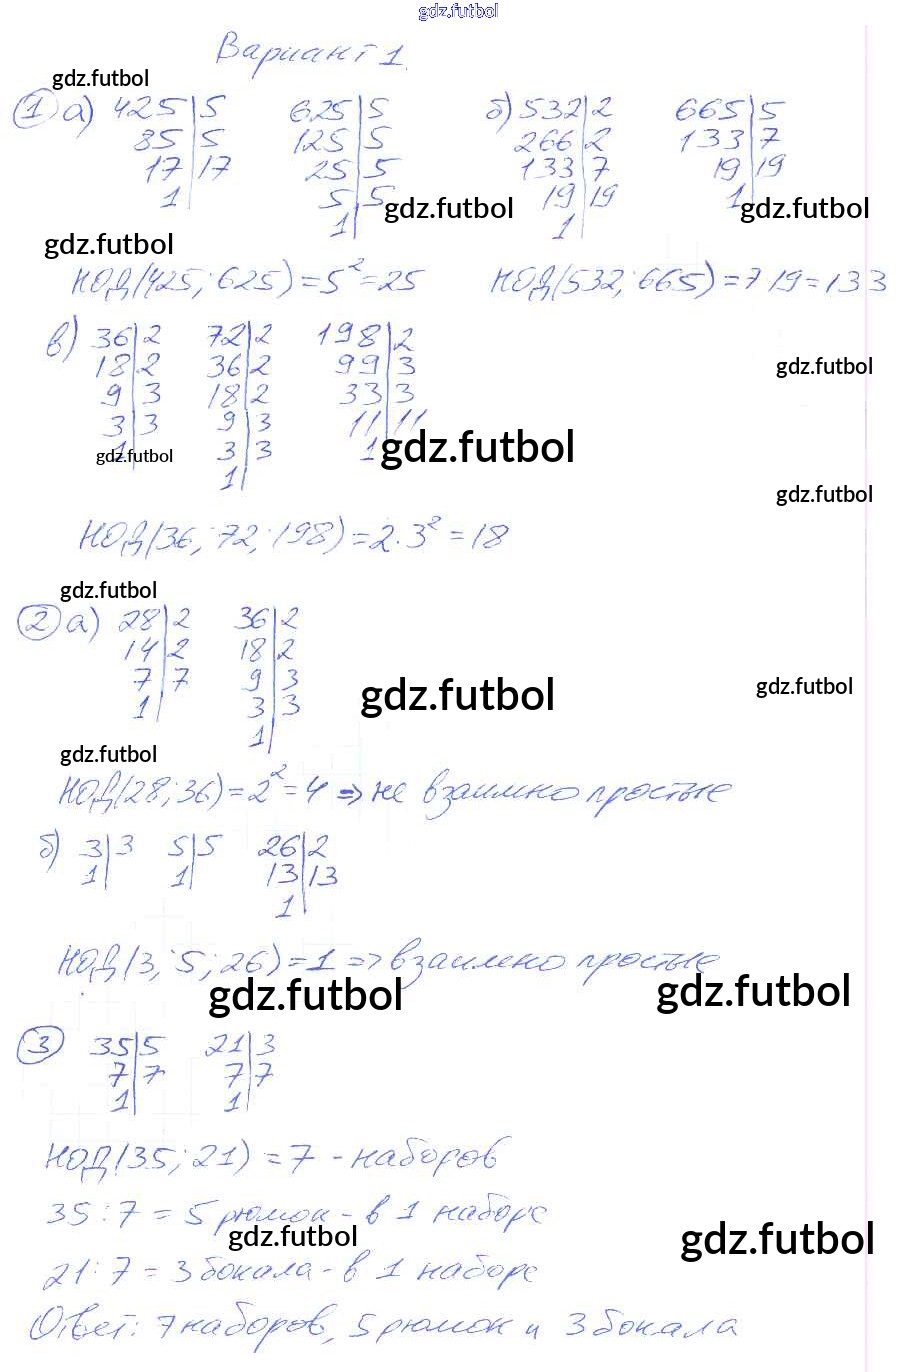 gdz.futbol
Вариант 1.
gdz.futbol
① а) 425|5 625|5 б) 532|2 665|5
85|5 125|5 266|2 133|7
17|17 25|5 133|7 19|19
1| 5|5 19|19 1|
gdz.futbol gdz.futbol
1| 1|
gdz.futbol
НОД(425; 625) = 5² = 25 НОД(532; 665) = 7 19 = 133
в) 36|2 72|2 198|2
18|2 36|2 99|3
gdz.futbol
9|3 18|2 33|3
3|3 9|3 11|11
1| 3|3 1|
gdz.futbol gdz.futbol
1|
gdz.futbol
НОД(36; 72; 198) = 2·3² = 18
gdz.futbol
② а) 28|2 36|2
14|2 18|2
7|7 9|3
gdz.futbol gdz.futbol
1| 3|3
1|
gdz.futbol
НОД(28; 36) = 2² = 4 => не взаимно простые
б) 3|3 5|5 26|2
1| 1| 13|13
1|
НОД(3; 5; 26) = 1 => взаимно простые
gdz.futbol gdz.futbol
③ 35|5 21|3
7|7 7|7
1| 1|
НОД(35; 21) = 7 - наборов
35 : 7 = 5 рюмок - в 1 наборе
gdz.futbol gdz.futbol
21 : 7 = 3 бокала - в 1 наборе
Ответ: 7 наборов, 5 рюмок и 3 бокала